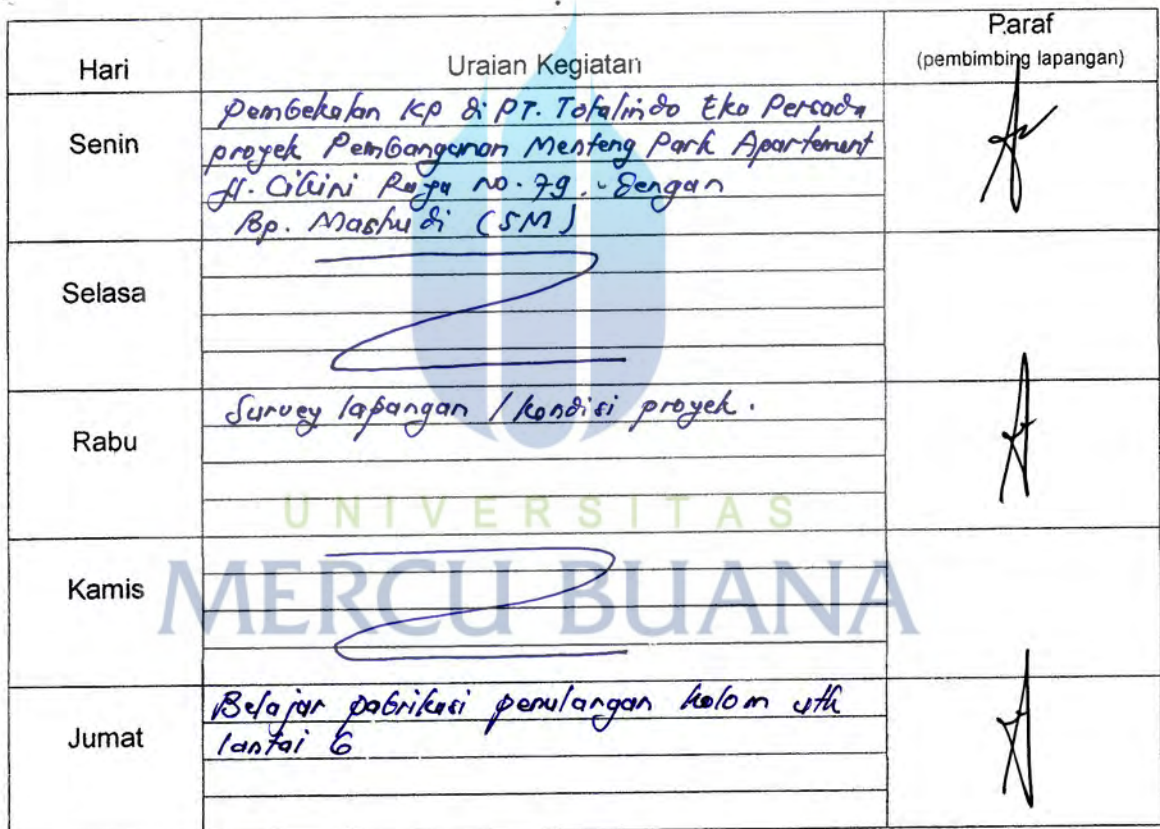 Hari
Uraian Kegiatan
Paraf
(pembimbing lapangan)
Senin
Pembekalan KP di PT. Totalindo Eko Persada
proyek Pembangunan Menteng Park Apartement
Jl. Cikini Raya no. 79. dengan
Bp. Mashudi (SM)
Selasa
Rabu
Survey lapangan / kondisi proyek.
Kamis
Jumat
Belajar pabrikasi penulangan kolom utk
lantai 6
UNIVERSITAS
MERCU BUANA